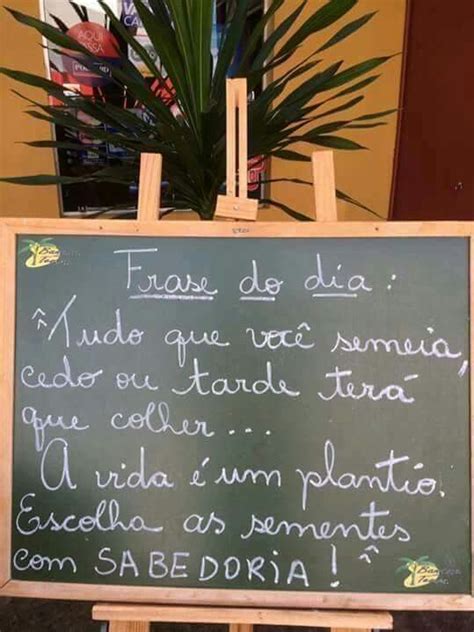 AQUI
Frase do dia:
"Tudo que você semeia,
cedo ou tarde terá
que colher...
A vida é um plantio.
Escolha as sementes
com SABEDORIA!"